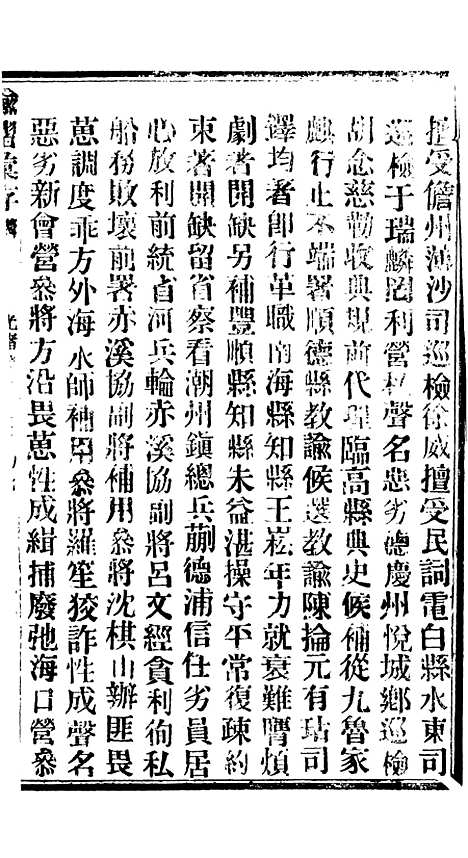 擅受儋州薄沙司巡檢徐威擅受民詞電白縣水東司
巡檢于瑞麟罔利營私聲名惡劣德慶州悅城鄉巡檢
胡念慈勒收典規前代理臨高縣典史候補從九魯家
麒行止不端署順德縣教諭候選教諭陳掄元有玷司
鐸均著卽行革職南海縣知縣王崧年力就衰難膺煩
劇著開缺另補豐順縣知縣朱益湛操守平常復疎約
束著開缺留省察看潮州鎭總兵蒯德浦信任劣員居
心放利前統省河兵輪赤溪協副將呂文經貪利徇私
船務敗壞前署赤溪協副將補用叅將沈棋山辦匪畏
葸調度乖方外海水師補用叅將羅笙狡詐性成聲名
惡劣新會營叅將方沿畏葸性成緝捕廢弛海口營叅
光緒